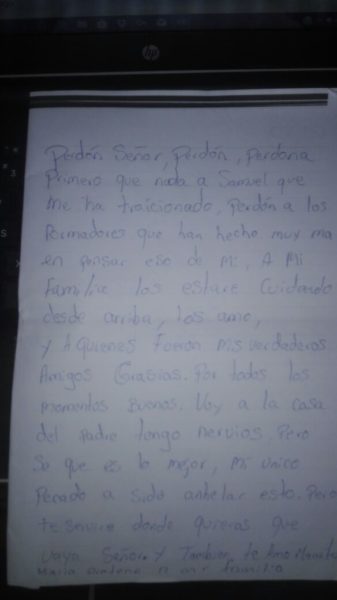 hp
Perdón Señor, Perdón, Perdona
Primero que nada a Samuel que
Me ha traicionado, Perdón a los
Formadores que han hecho muy ma
en pensar eso de Mi, A Mi
Familia los estare Cuidando
desde arriba, los amo,
y A Quienes Fueron Mis verdaderos
Amigos Grasias. Por todos los
momentos Buenos. Voy a la casa
del Padre tengo nervios, Pero
Se que es lo mejor, Mi unico
Pecado a sido anhelar esto. Pero
te donde quieras que
Vaya Señor. Y Tambien te Amo